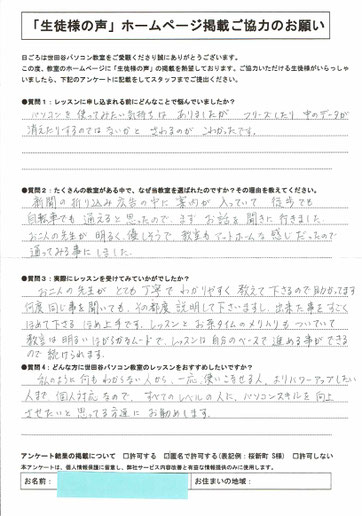 「生徒様の声」ホームページ掲載ご協力のお願い
日ごろは世田谷パソコン教室をご愛顧くださり誠にありがとうございます。
この度、教室のホームページに「生徒様の声」の掲載を熱望しております。ご協力いただける生徒様がいらっしゃ
いましたら、下記のアンケートに記載をしてスタッフまでご提出ください。
●質問1：レッスンに申し込まれる前にどんなことで悩んでいましたか？
パソコンを使ってみたい気持ちは ありましたが フリーズしたり 中のデータが
消えたりするのではないかと されるのが こわかったです。
●質問2：たくさんの教室がある中で、なぜ当教室を選ばれたのですか？その理由を教えてください。
新聞の折り込み広告の中に 案内が入っていて 徒歩でも
自転車でも 通えると思ったので、まず お話を聞きに行きました。
お二人の先生が 明るく、優しそうで、教室もアットホームな感じだったので
通ってみる事にしました。
●質問3：実際にレッスンを受けてみていかがでしたか？
お二人の先生が とても丁寧で わかりやすく 教えて下さるので助かってます
何度同じ事を聞いても、その都度 説明して下さいますし、出来た事をすごく
ほめて下さる ほめ上手です。レッスンと お茶タイムのメリハリもついていて
教室は 明るいほがらかなムードで、レッスンは 自分のペースで進める事ができる
ので 続けられます。
●質問4：どんな方に世田谷パソコン教室のレッスンをおすすめしたいですか？
私のように何もわからない人から、一応、使いこなせる人、よりパワーアップしたい
人まで、個人対応なので、すべてのレベルの人に、パソコンスキルを向上
させたいと思ってる方達に お勧めします。
アンケート結果の掲載について □許可する ☑匿名で許可する（表記例：桜新町 S様） □許可しない
本アンケートは、個人情報保護に留意し、弊社サービス内容改善と有益な情報提供のみに使用します。
お名前： お住まいの地域：